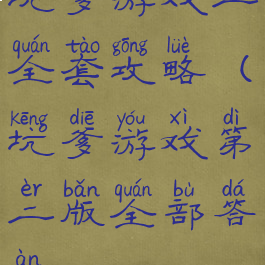 quán tào gōng lüè
全套攻略（
Kēng diē yóu xì dì
坑爹游戏第
èr bǎn quán bù dá
二版全部答
àn